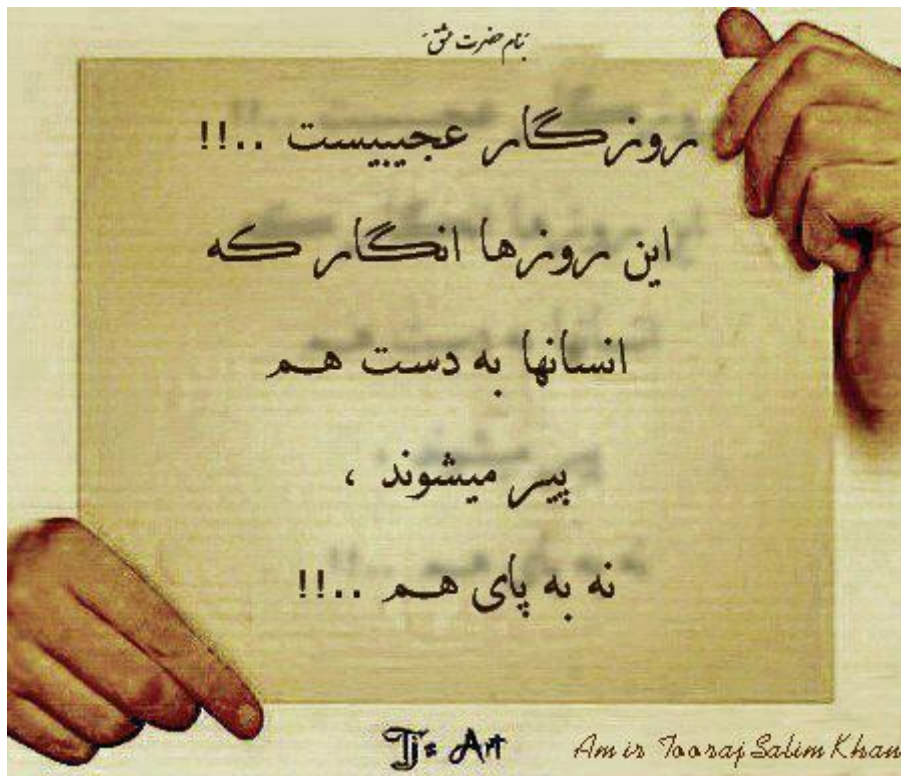 بنام حضرت عشق
روزگار عجیبیست ..!!
این روزها انگار که
انسانها به دست هم
پیر میشوند ،
نه به پای هم ..!!
Tj's Art
Amir Tooraj Salim Khan